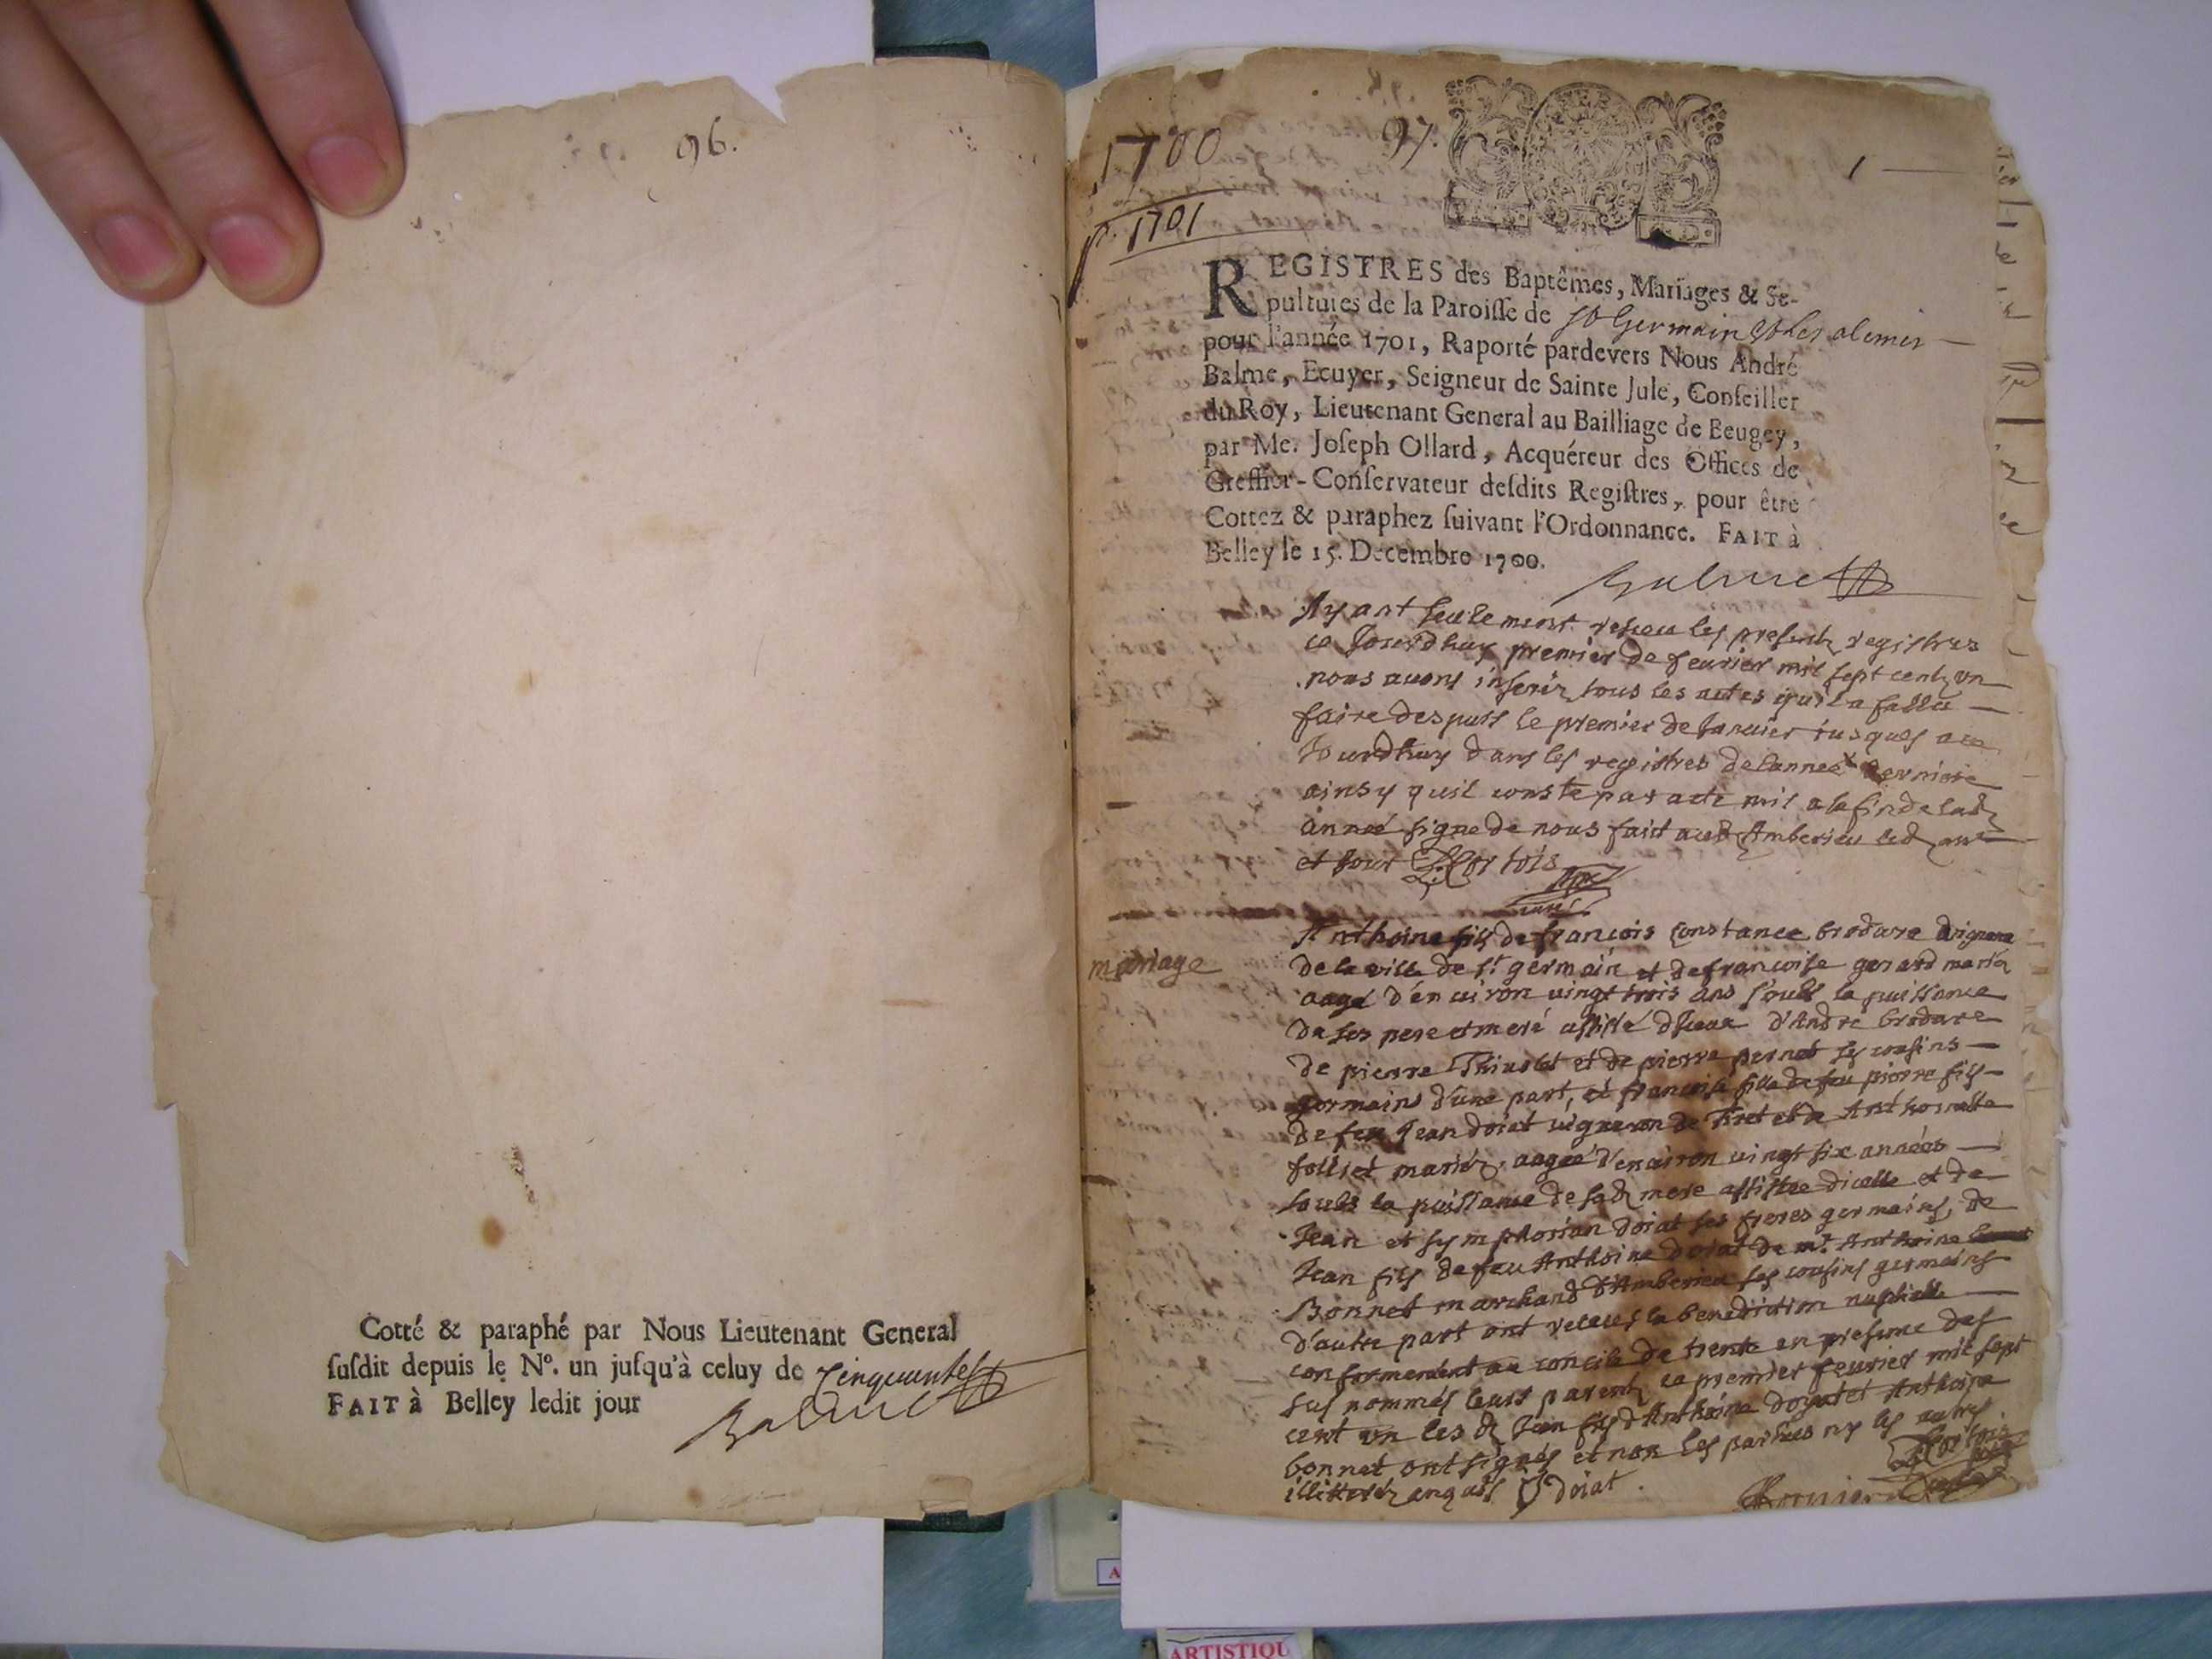 96.
Cotté & paraphé par Nous Lieutenant General
susdit depuis le N°. un jusqu'à celuy de Cinquante
FAIT à Belley ledit jour
Balme
1700
97.
1
1701
REGISTRES des Baptêmes, Mariages & Se-
pultures de la Paroisse de St Germain
pour l'année 1701, Raporté pardevers Nous André
Balme, Ecuyer, Seigneur de Sainte Jule, Conseiller
du Roy, Lieutenant General au Bailliage de Beugey,
par Me. Joseph Ollard, Acquéreur des Offices de
Greffier-Conservateur desdits Registres, pour être
Cottez & paraphez suivant l'Ordonnance. FAIT à
Belley le 15. Decembre 1700.
Balme
Ayant seulement receu les presents registres
ce Jourdhuy premier de feurier mil sept cents un
nous auons inserez tous les actes qu'il a fallu
faire despuis le premier de Januier iusques au
Jourdhuy dans les registres de lannee derniere
ainsy quil conste par acte mis a la fin de lad
année signe de nous fait aud Amberieu led an
et Jour
mariage
Anthoine fils de francois Constance brodare vigneron
de la ville de st germain et de francoise gerard mariez
aagé d'enuiron vingt trois ans soubs la puissance
de ses pere et mere assisté d'Iceux d'André brodare
de pierre Thiuolet et de pierre pernet ses cousins
germains d'une part, et francoise fille de feu pierre fils
de feu Jean doiat uigneron de Tiret et de Anthoinette
folliet mariez, aagée d'enuiron uingt six années
soubs la puissance de sad mere assistee dicelle et de
Jean et symphorian doiat ses freres germains, de
Jean fils de feu Anthoine doiat de mr Anthoine
Bonnet marchand d'Amberieu ses cousins germains
d'autre part ont receus la benediction nuptialle
conformement au concile de trente en presence des
sus nommés leurs parents ce premier feurier mil sept
cent un les d Jean fils d'Anthoine doyat et Anthoine
bonnet ont signés et non les parties ny les autres
illitterez enquis doiat.